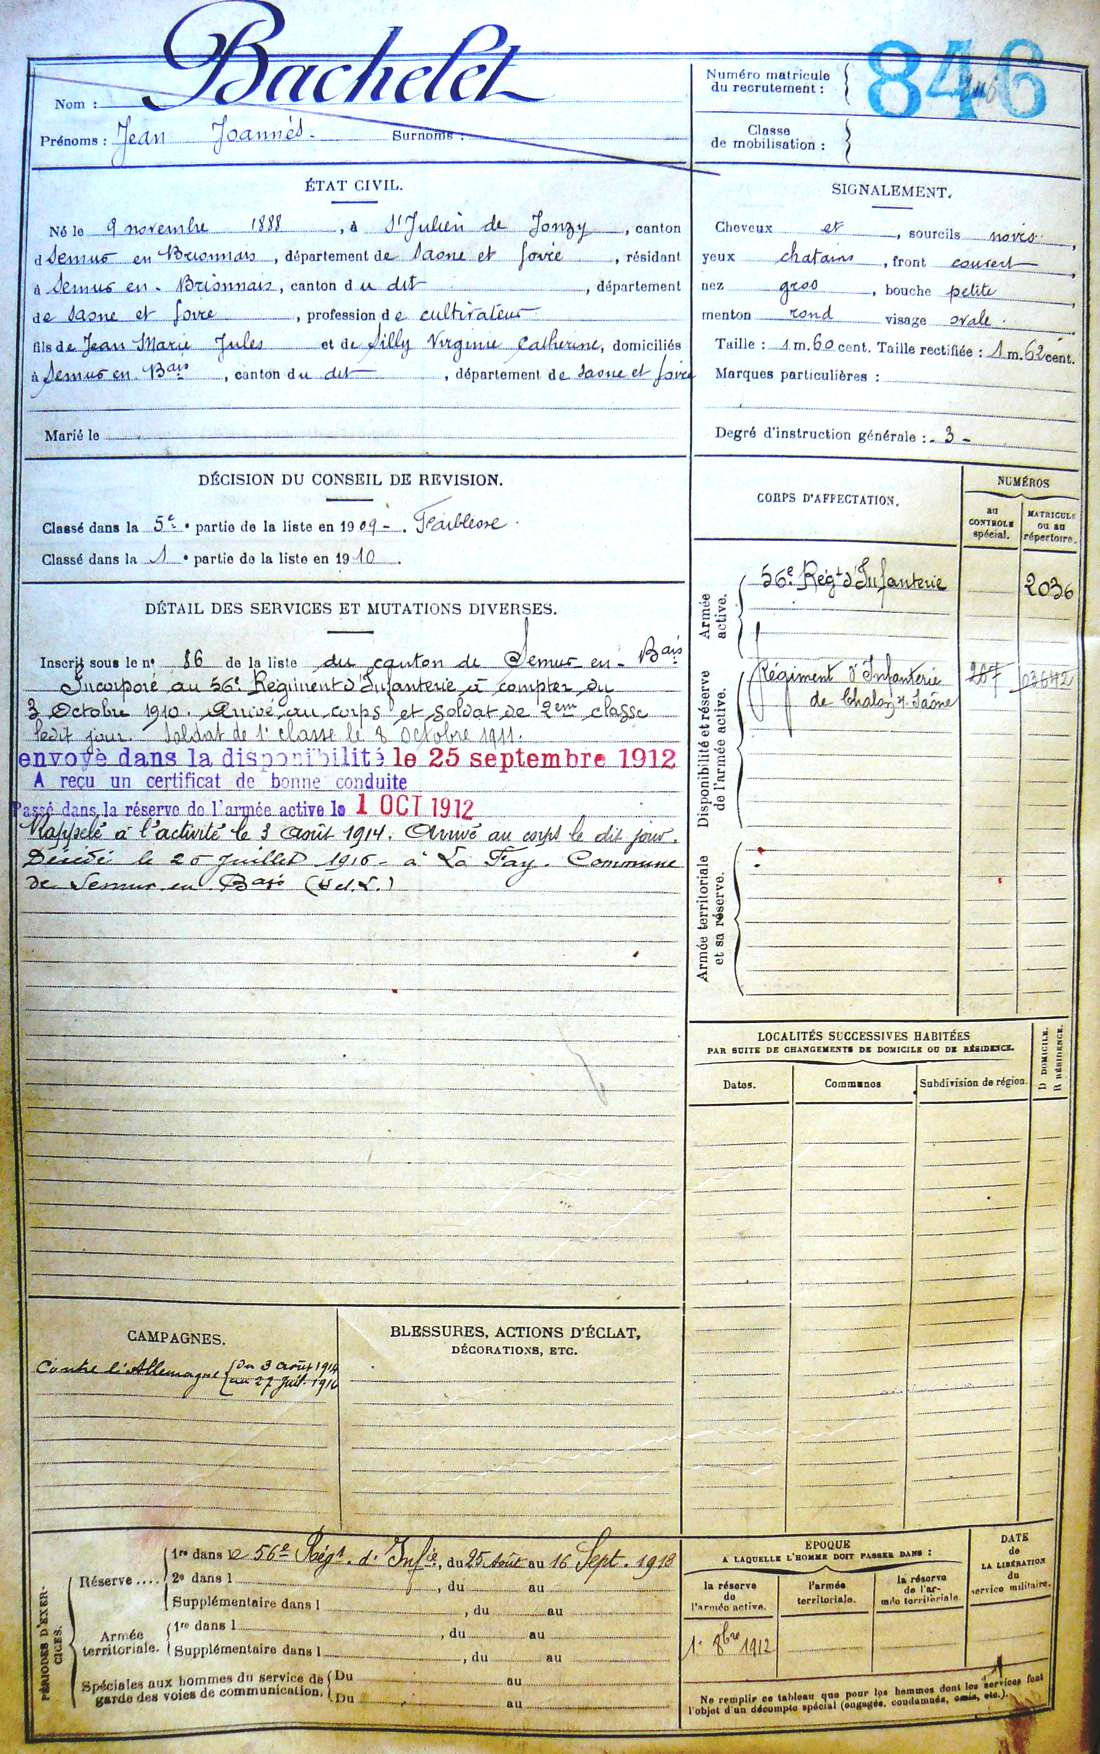 Nom : Bachelet
Prénoms : Jean Joannès. Surnoms :
Numéro matricule du recrutement : 846
Classe de mobilisation :
ÉTAT CIVIL.
Né le 9 novembre 1888, à St Julien de Jonzy, canton
d Semur en Brionnais, département de Saone et Loire, résidant
à Semur en Brionnais, canton du dit, département
de Saone et Loire, profession de cultivateur
fils de Jean Marie Jules et de Silly Virginie Catherine, domiciliés
à Semur en Bais, canton du dit, département de Saone et Loire
Marié le
SIGNALEMENT.
Cheveux et, sourcils noirs,
yeux chatains, front couvert,
nez gros, bouche petite,
menton rond visage ovale.
Taille : 1 m. 60 cent. Taille rectifiée : 1 m. 62 cent.
Marques particulières :
Degré d'instruction générale : - 3 -
DÉCISION DU CONSEIL DE REVISION.
Classé dans la 5e partie de la liste en 1909 - . Faiblesse.
Classé dans la 1 e partie de la liste en 1910.
DÉTAIL DES SERVICES ET MUTATIONS DIVERSES.
Inscrit sous le n° 86 de la liste du canton de Semur en Bais
Incorporé au 56e Régiment d'Infanterie à compter du
3 Octobre 1910. Arrivé au corps et soldat de 2eme classe
ledit jour. Soldat de 1e classe le 8 octobre 1911.
envoyé dans la disponibilité le 25 septembre 1912
A reçu un certificat de bonne conduite
Passé dans la réserve de l'armée active le 1 OCT 1912
Rappelé à l'activité le 3 Août 1914. Arrivé au corps le dit jour.
Décédé le 26 Juillet 1916 - à La Fay. Commune
de Semur en Bais (S et L.)
CORPS D'AFFECTATION.
NUMÉROS
au CONTROLE spécial.
MATRICULE ou au répertoire.
Armée active.
56e Régt d'Infanterie 2036
Disponibilité et réserve de l'armée active.
Régiment d'Infanterie 267 03642
de Chalon s. Saône
Armée territoriale et sa réserve.
LOCALITÉS SUCCESSIVES HABITÉES
PAR SUITE DE CHANGEMENTS DE DOMICILE OU DE RÉSIDENCE.
Dates. Communes Subdivision de région.
D DOMICILE.
R RÉSIDENCE.
CAMPAGNES.
Contre l'Allemagne { Du 3 août 1914
au 27 Juil. 1916
BLESSURES, ACTIONS D'ÉCLAT,
DÉCORATIONS, ETC.
PÉRIODES D'EXERCICES.
Réserve.... 1re dans le 56e Régt. d'Infie, du 25 Août au 16 Sept. 1913
2e dans l , du au
Supplémentaire dans l , du au
Armée territoriale. 1re dans l , du au
Supplémentaire dans l , du au
Spéciales aux hommes du service de garde des voies de communication. Du au
Du au
ÉPOQUE
A LAQUELLE L'HOMME DOIT PASSER DANS :
la réserve de l'armée active.
l'armée territoriale.
la réserve de l'armée territoriale.
DATE de LA LIBÉRATION du service militaire.
1er 8bre 1912
Ne remplir ce tableau que pour les hommes dont les services font
l'objet d'un décompte spécial (engagés, condamnés, omis, etc.).